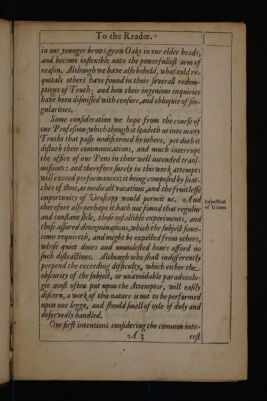 To the Reader.
in our younger brows, grow Oaks in our elder heads,
and become inflexible unto the powerfullest arm of
reason. Although we have also beheld, what cold re-
quitals others have found in their severall redem-
ptions of Truth; and how their ingenious enquiries
have been dismissed with censure, and obloquie of sin-
gularities.
Some consideration we hope from the course of
our Profession, which though it leadeth us into many
Truths that passe undiscerned by others, yet doth it
disturb their communications, and much interrupt
the office of our Pens in their well intended trans-
missions: and therefore surely in this work attempts
will exceed performances: it being composed by snat-
ches of time, as medicall vacations, and the fruitlesse
importunity of Uroscopy would permit us. And
therefore also perhaps it hath not found that regular
and constant stile, those infallible experiments, and
those assured determinations, which the subject some-
time requireth, and might be expected from others,
whose quiet doors and unmolested hours afford no
such distractions. Although who shall indifferently
perpend the exceeding difficulty, which either the
obscurity of the subject, or unavoidable paradoxolo-
gie must often put upon the Attemptor, will easily
discern, a work of this nature is not to be performed
upon one legge, and should smell of oyle if duly and
deservedly handled.
Our first intentions considering the common inte-
A 3
rest
Inspection
of Urines.